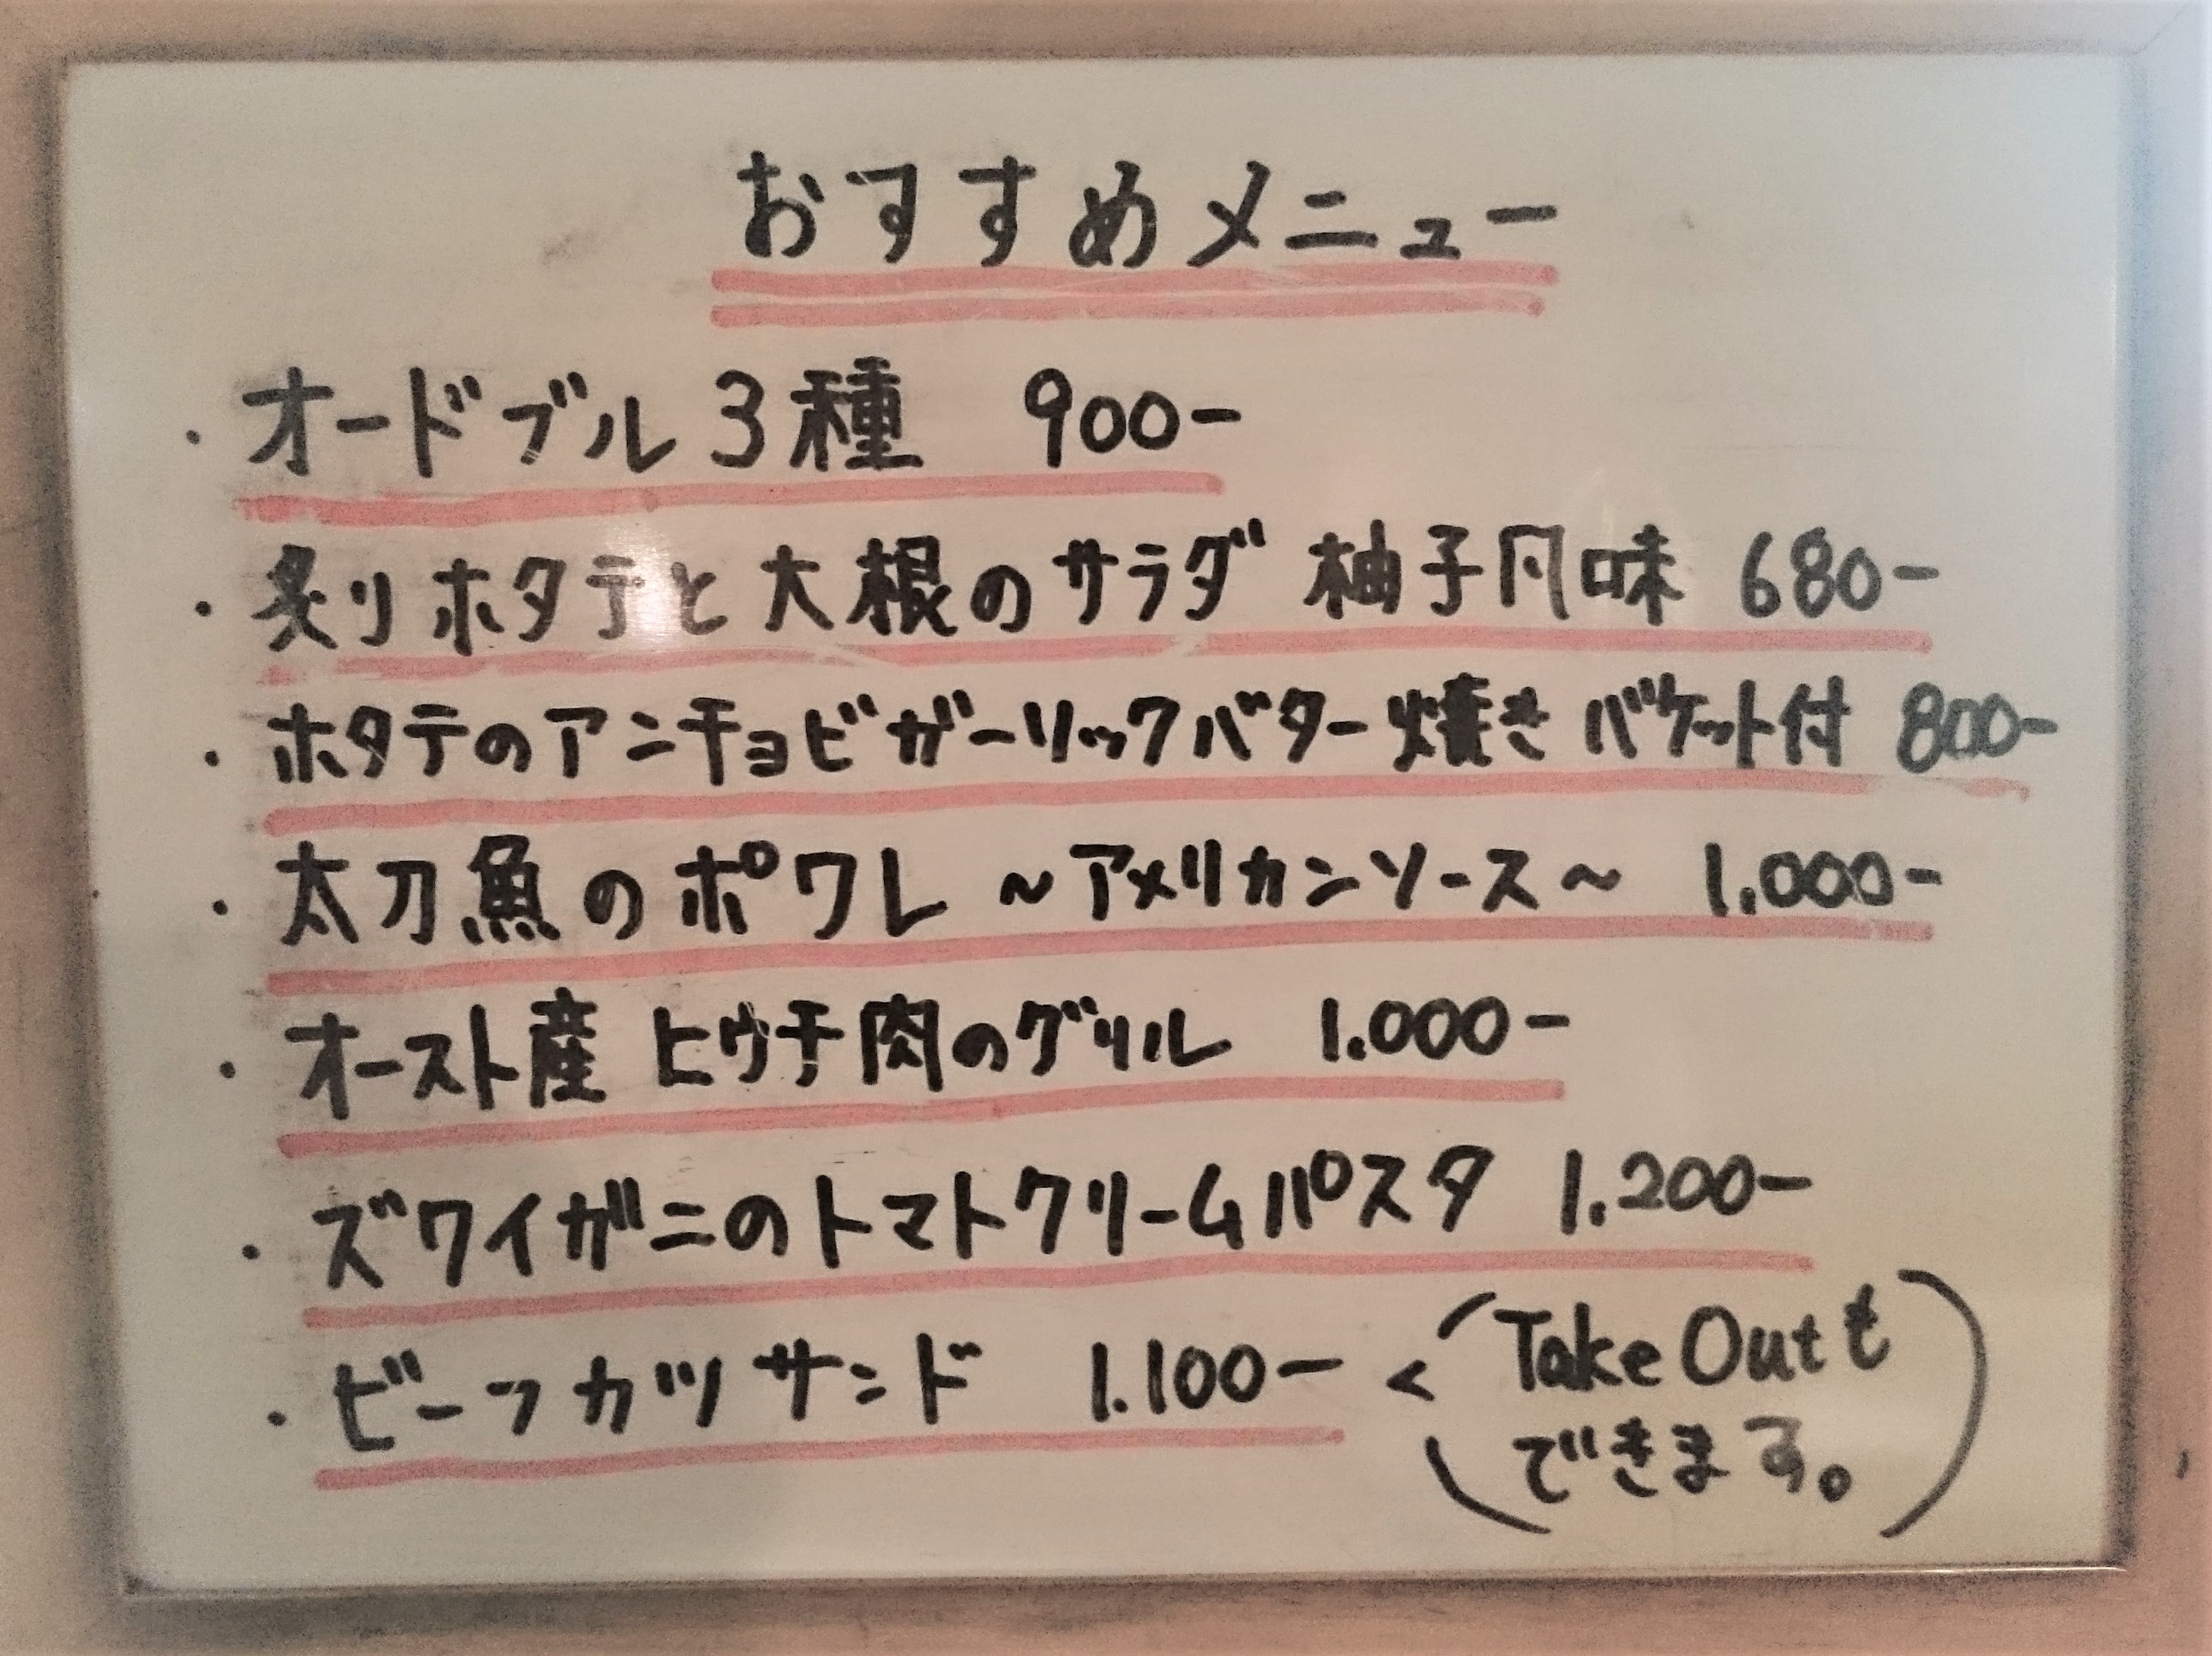 おすすめメニュー
・オードブル3種 900-
・炙りホタテと大根のサラダ 柚子風味 680-
・ホタテのアンチョビガーリックバター焼き バケット付 800-
・太刀魚のポワレ ～アメリカンソース～ 1.000-
・オースト産 ヒウチ肉のグリル 1.000-
・ズワイガニのトマトクリームパスタ 1.200-
・ビーフカツサンド 1.100- < (Take Outも
できます。)